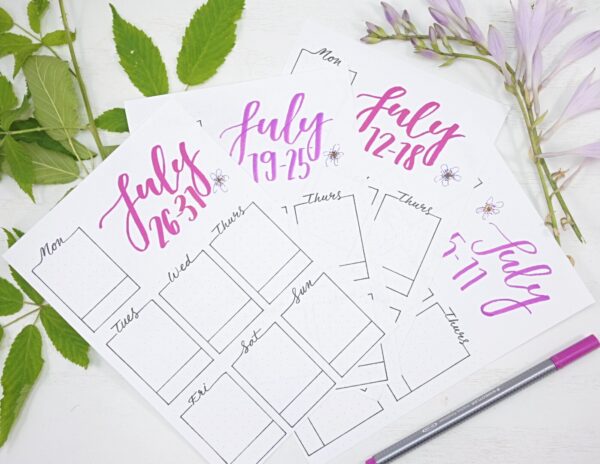 July
26-31
Mon
Tues
Wed
Thurs
Fri
Sat
Sun
July
19-25
Thurs
Mon
July
12-18
Thurs
July
5-11
Thurs